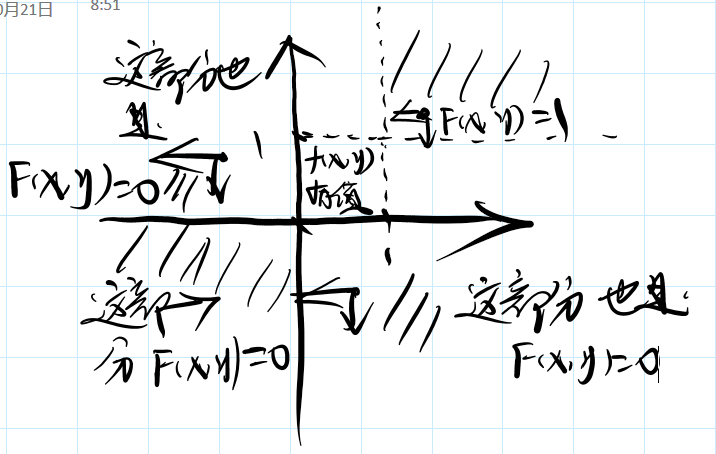 0月21日 8:51
这部分也
是
F(x,y)=1
1
f(x,y)
有值
F(x,y)=0
这部
分 F(x,y)=0
这部分也是
F(x,y)=0